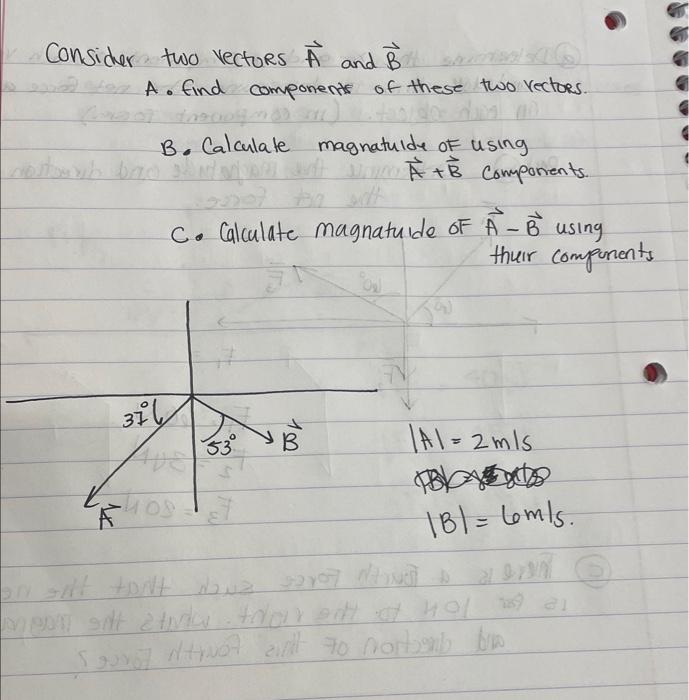 Considor two vectors A⃗ and B⃗
A. find components of these two vectors.
B. Calculate magnatuide of using
A⃗ + B⃗ components.
C. Calculate magnatuide of A⃗ - B⃗ using
thuir components
37°
53°
B⃗
A⃗
|A| = 2 m/s
|B| = 6 m/s.